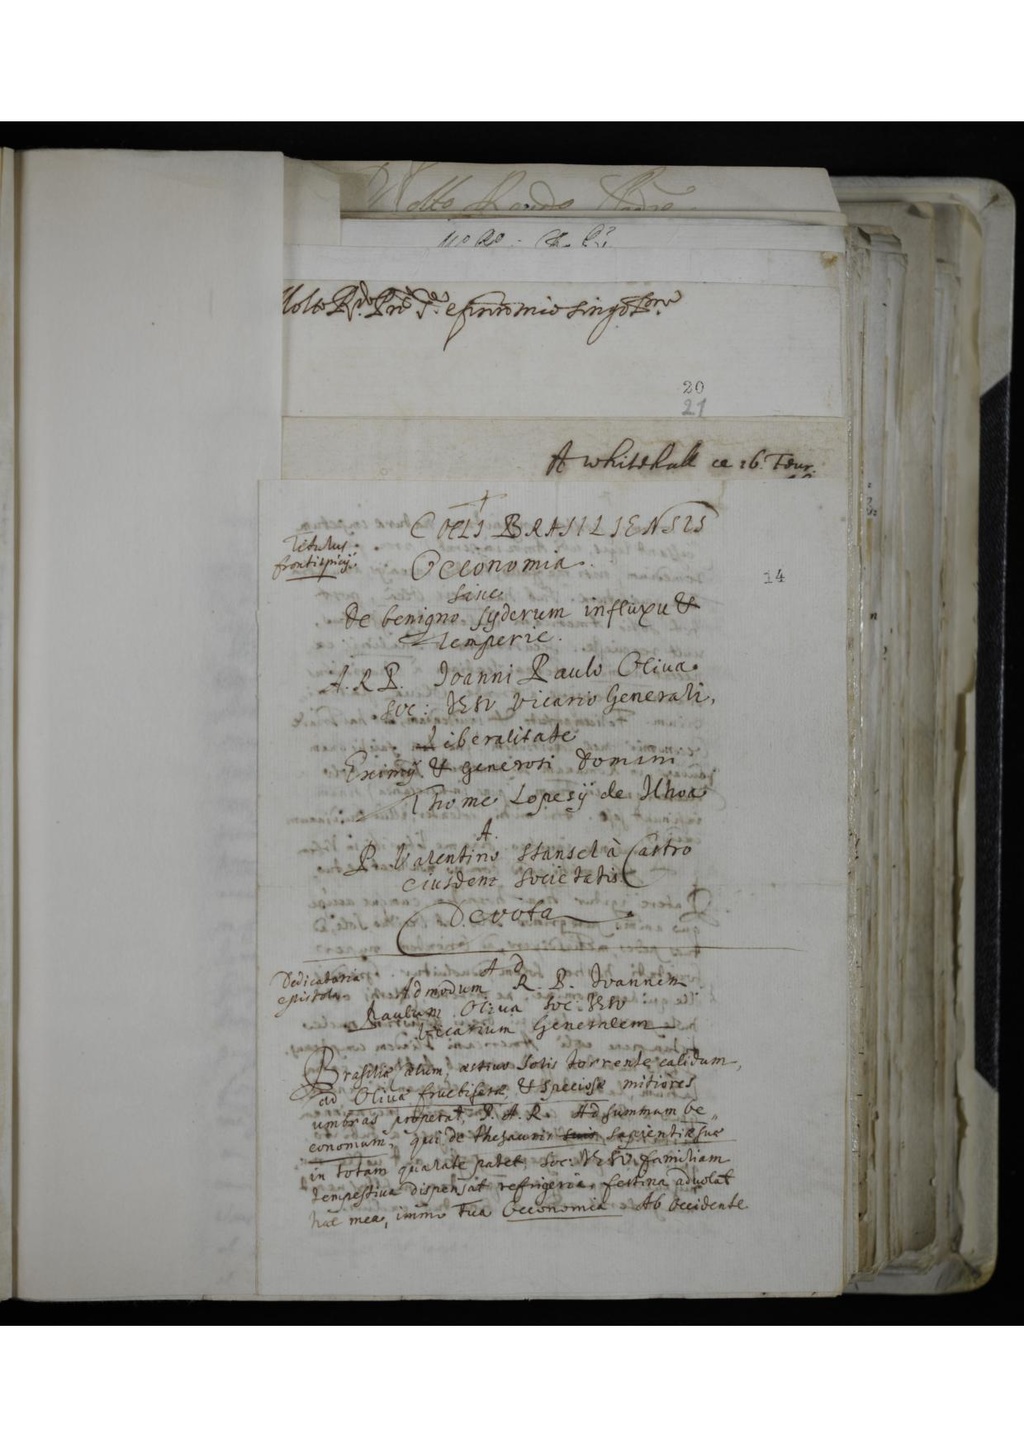 Molto Rdo Pre
A whitehall ce 26. Four.
20
21
14
COELI BRASILIENSIS
Titulus
frontispicij.
Oeconomia.
Sive
De benigno syderum influxu &
temperie.
A. R. P. Ioanni Paulo Oliva.
Soc: IESV Vicario Generali,
Liberalitate
Eximij & generosi Domini
Thome Lopesij de Ulhoa
A.
P. Valentino Stansel à Castro
eiusdem Societatis
Devota
Dedicatoria
epistola.
AD
Admodum R. P. Ioannem
Paulum Oliva Soc. IESV
Vicarium Generalem
Brasiliæ œlum, æstivo Solis torrente calidum,
ad Olivæ fructiferæ, & speciosæ mitiores
umbras properat, P. A. R. Ad summum œ„
conomum, qui de thesauris suis sapientiæ suæ
in totam qua late patet, Soc: IESV, familiam
tempestiva dispensat refrigeria, festina advolat
hæc mea, immo tua Oeconomia. Ab Occidente